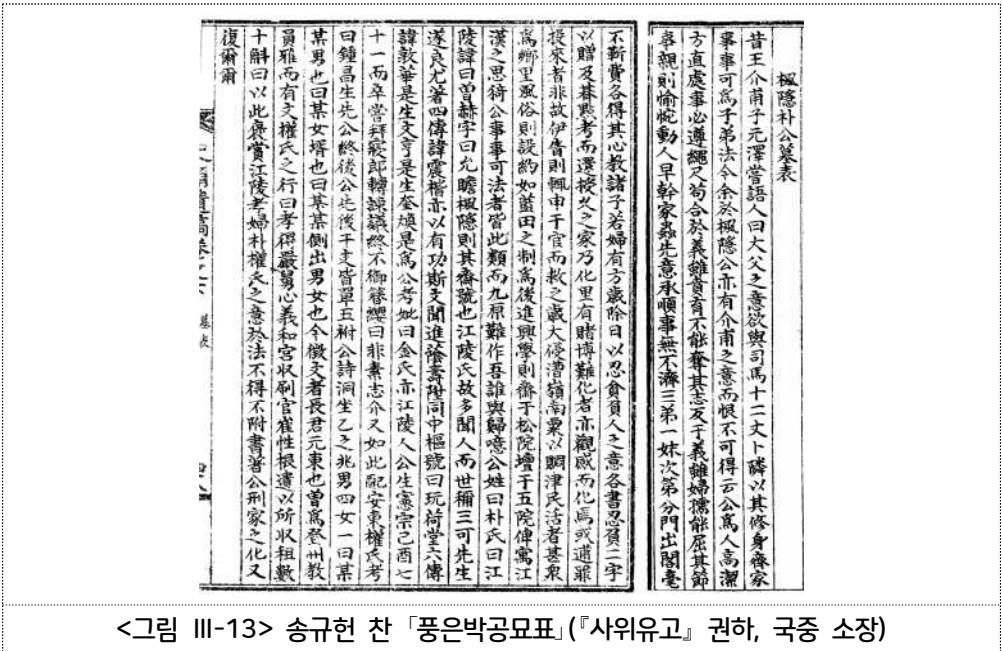 楓隱朴公墓表
昔王介甫子元澤嘗語人曰大父之意欲與司馬十二丈卜隣以其修身齊家
事事可爲子弟法今余於楓隱公亦有介甫之意而恨不可得云公爲人高潔
方直處事必遵繩尺苟合於義雖賁育不能奪其志反于義雖婦孺能屈其節
事親則愉惋動人早幹家蠱先意承順事無不濟三弟一妹次第分門出閤毫
不靳費各得其心敎諸子若婦有方歲除日以忍貪貧人之意各書忍貧二字
以贈及暮點考而還授之家乃化里有賭博難化者亦觀感而化焉或遭罪
投來者非故伊眚則輒申于官而救之歲大侵漕嶺南粟以賙津民活者甚衆
爲鄕里風俗則設約如藍田之制爲後進興學則齋于松院壇于五院俾寓江
漢之思猗公事事可法者皆此類而九原難作吾誰與歸噫公姓曰朴氏曰江
陵諱曰曾赫字曰允瞻楓隱則其齋號也江陵氏故多聞人而世稱三可先生
遂良尤著四傳諱震楷亦以有功斯文聞進蔭壽陞同中樞號曰玩荷堂六傳
諱敦華是生文亨是生奎煥是爲公考妣曰金氏亦江陵人公生憲宗己酉七
十一而卒嘗拜寢郞轉諫議終不御簪纓曰非素志介又如此配安東權氏考
曰鍾昌生先公終後公先後干支皆單五祔公詩洞坐乙之兆男四女一曰某
某男也曰某女壻也曰某某側出男女也今徵文者長君元東也曾爲登州敎
員雅而有文權氏之行曰孝得嚴舅心義和宮收刷官崔性根遺以所收租數
十斛曰以此褒賞江陵孝婦朴權氏之意於法不得不附書著公刑家之化又
復爾爾
墓表
<그림 Ⅲ-13> 송규헌 찬 「풍은박공묘표」(『사위유고』 권하, 국중 소장)